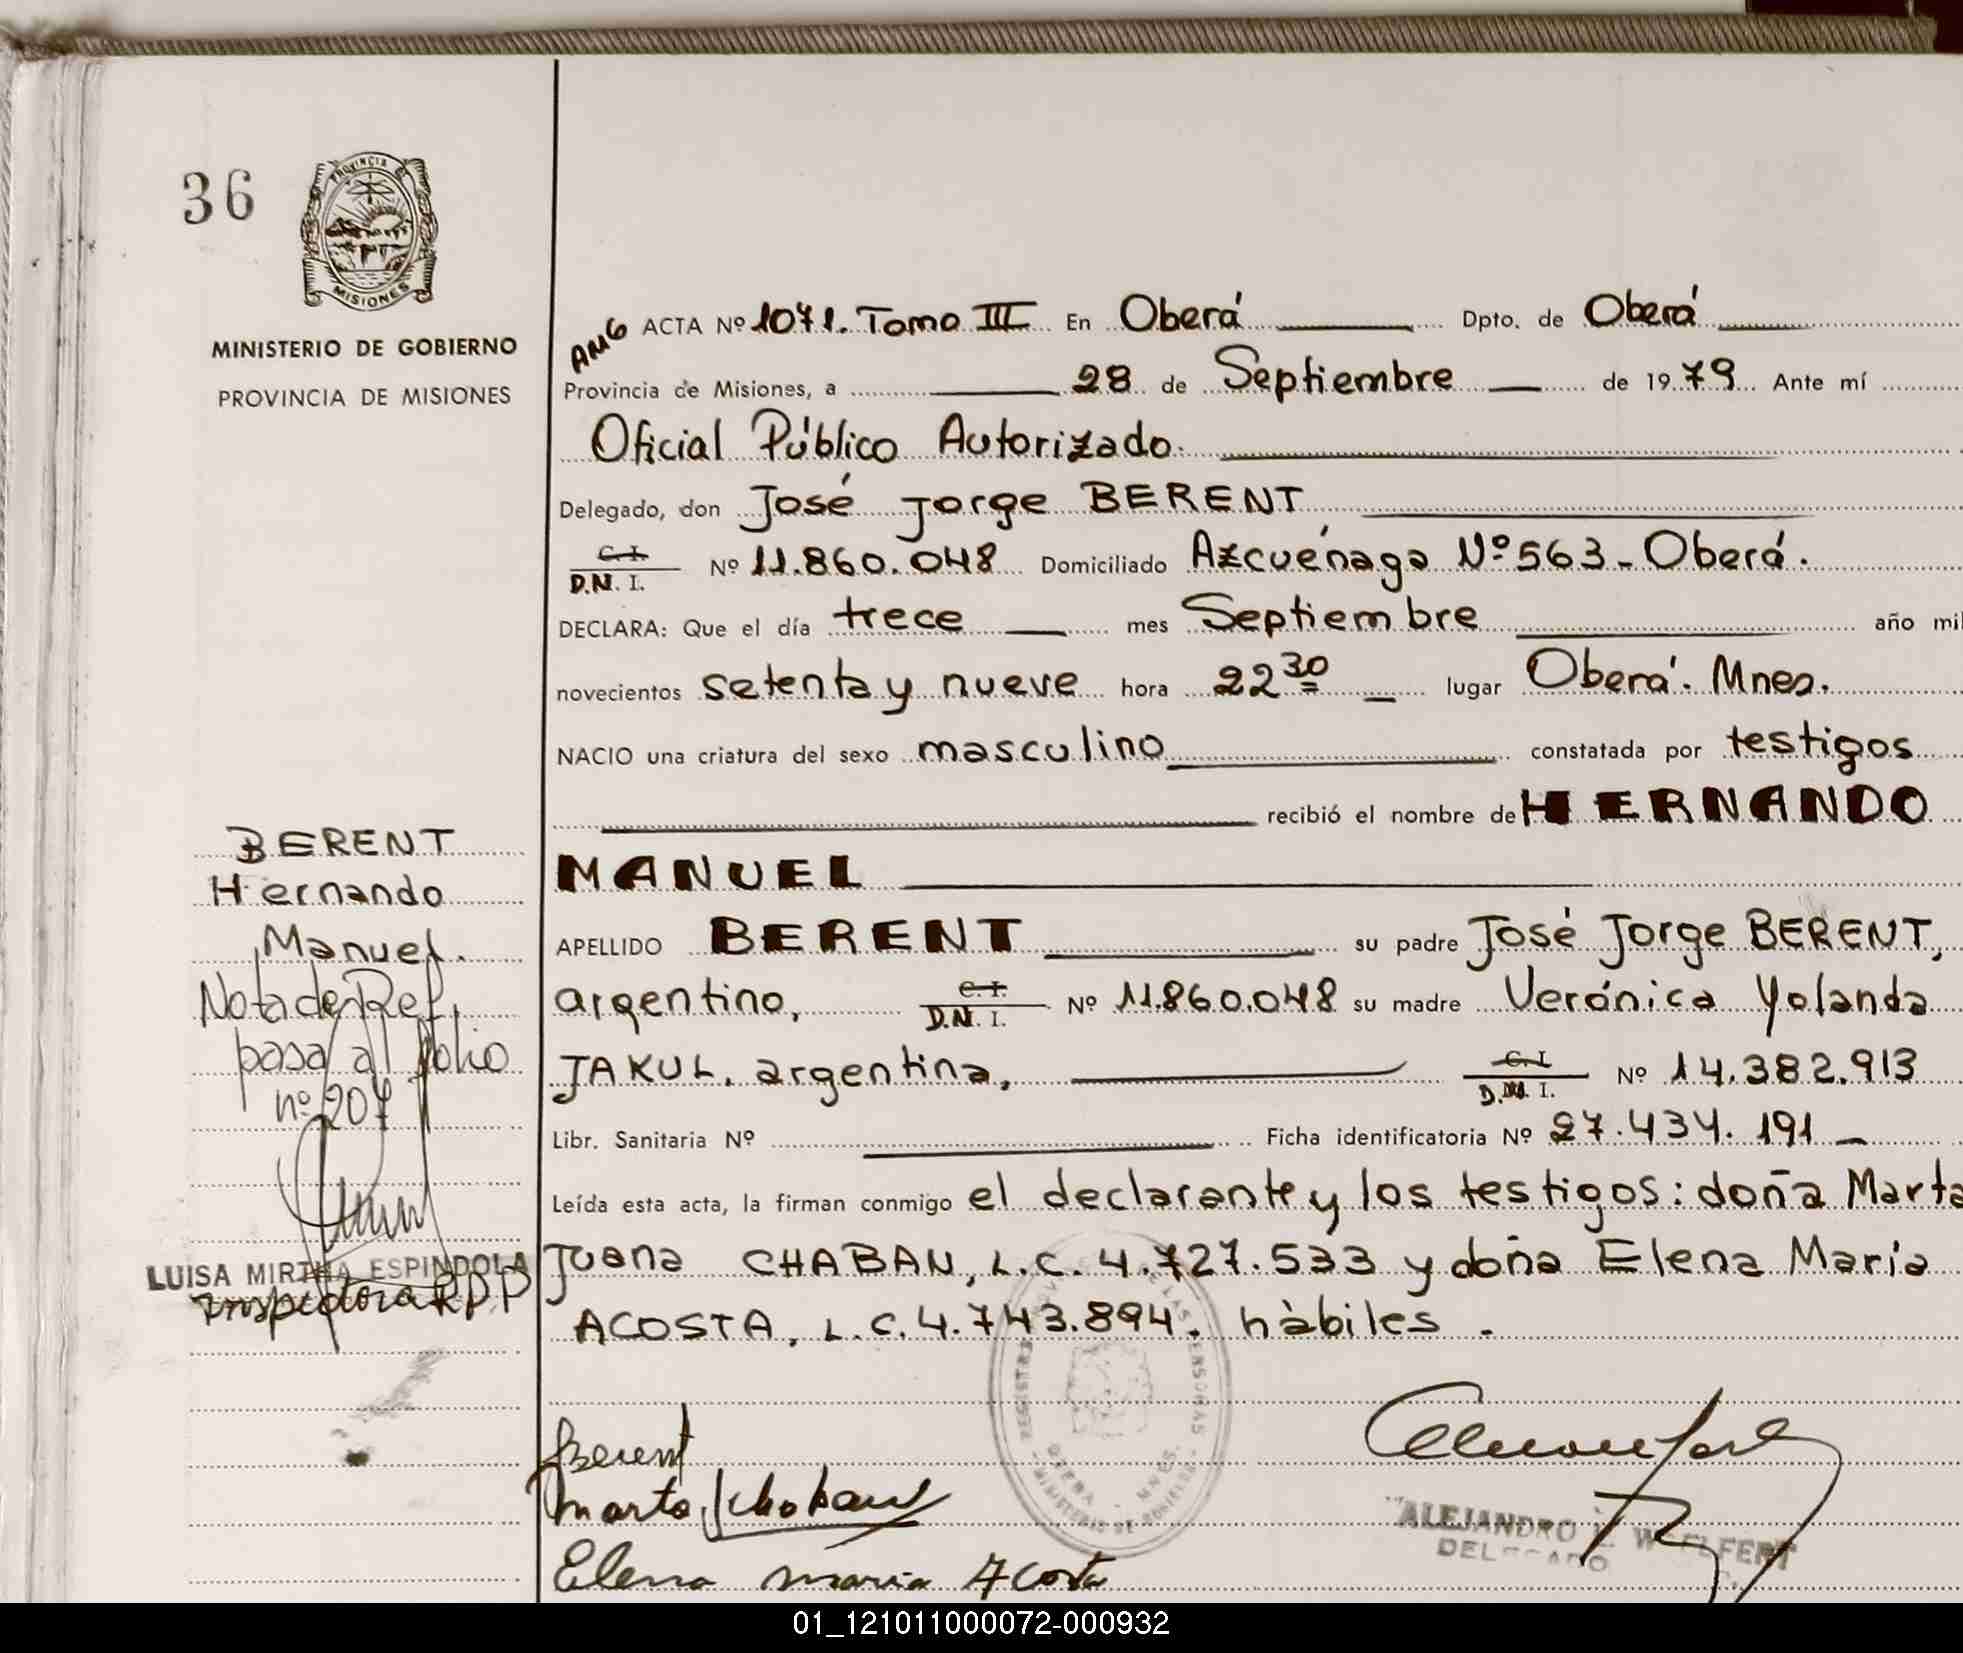 36
PROVINCIA DE
MISIONES
MINISTERIO DE GOBIERNO
PROVINCIA DE MISIONES
BERENT
Hernando
Manuel.
Nota de Ref.
pasa al folio
nº 207
LUISA MIRTHA ESPINDOLA
Inspectora RPP
AMG ACTA Nº 1071. Tomo III En Oberá Dpto. de Oberá
Provincia de Misiones, a 28 de Septiembre de 1979 Ante mí
Oficial Público Autorizado.
Delegado, don José Jorge BERENT
C.I.
D.N.I. Nº 11.860.048 Domiciliado Azcuénaga Nº 563 - Oberá.
DECLARA: Que el día trece mes Septiembre año mil
novecientos setenta y nueve hora 22 30 lugar Oberá. Mnes.
NACIO una criatura del sexo masculino constatada por testigos
recibió el nombre de HERNANDO
MANUEL
APELLIDO BERENT su padre José Jorge BERENT,
argentino, C.I. D.N.I. Nº 11.860.048 su madre Verónica Yolanda
JAKUL, argentina, C.I. D.N.I. Nº 14.382.913
Libr. Sanitaria Nº Ficha identificatoria Nº 27.434.191
Leída esta acta, la firman conmigo el declarante y los testigos: doña Marta
Juana CHABAN, L.C. 4.727.533 y doña Elena María
ACOSTA, L.C. 4.743.894. hàbiles.
Berent
Marta J Chaban
Elena Maria Acosta
OBERA - MNES.
MINISTERIO DE GOBIERNO
ALEJANDRO WOLFERT
DELEGADO
01_121011000072-000932